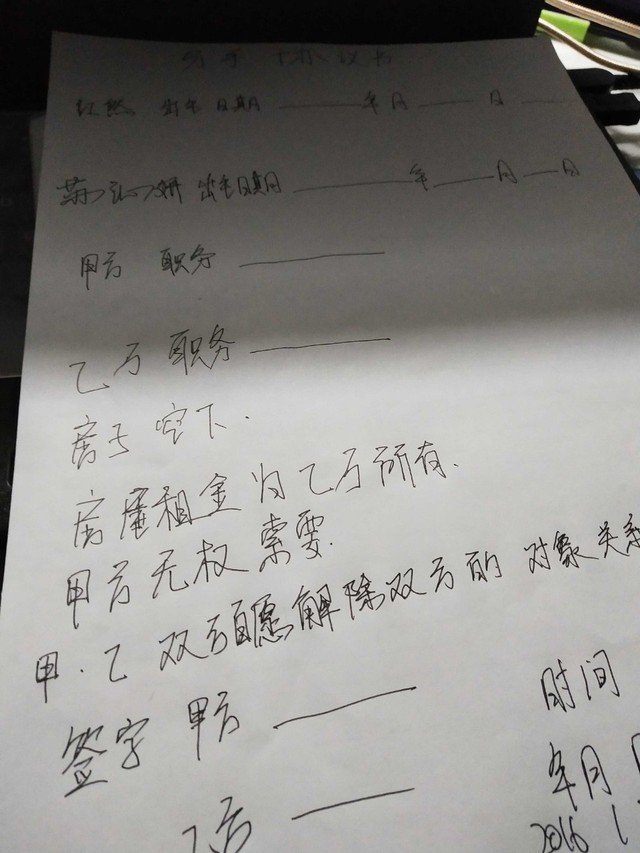 分手协议书
出生日期 年 月 日
出生日期 年 月 日
甲方 职务
乙方 职务
房子空下.
房屋租金为乙方所有.
甲方无权索要.
甲.乙双方自愿解除双方的对象关系
签字 甲方 时间
乙方 年月
2016 1